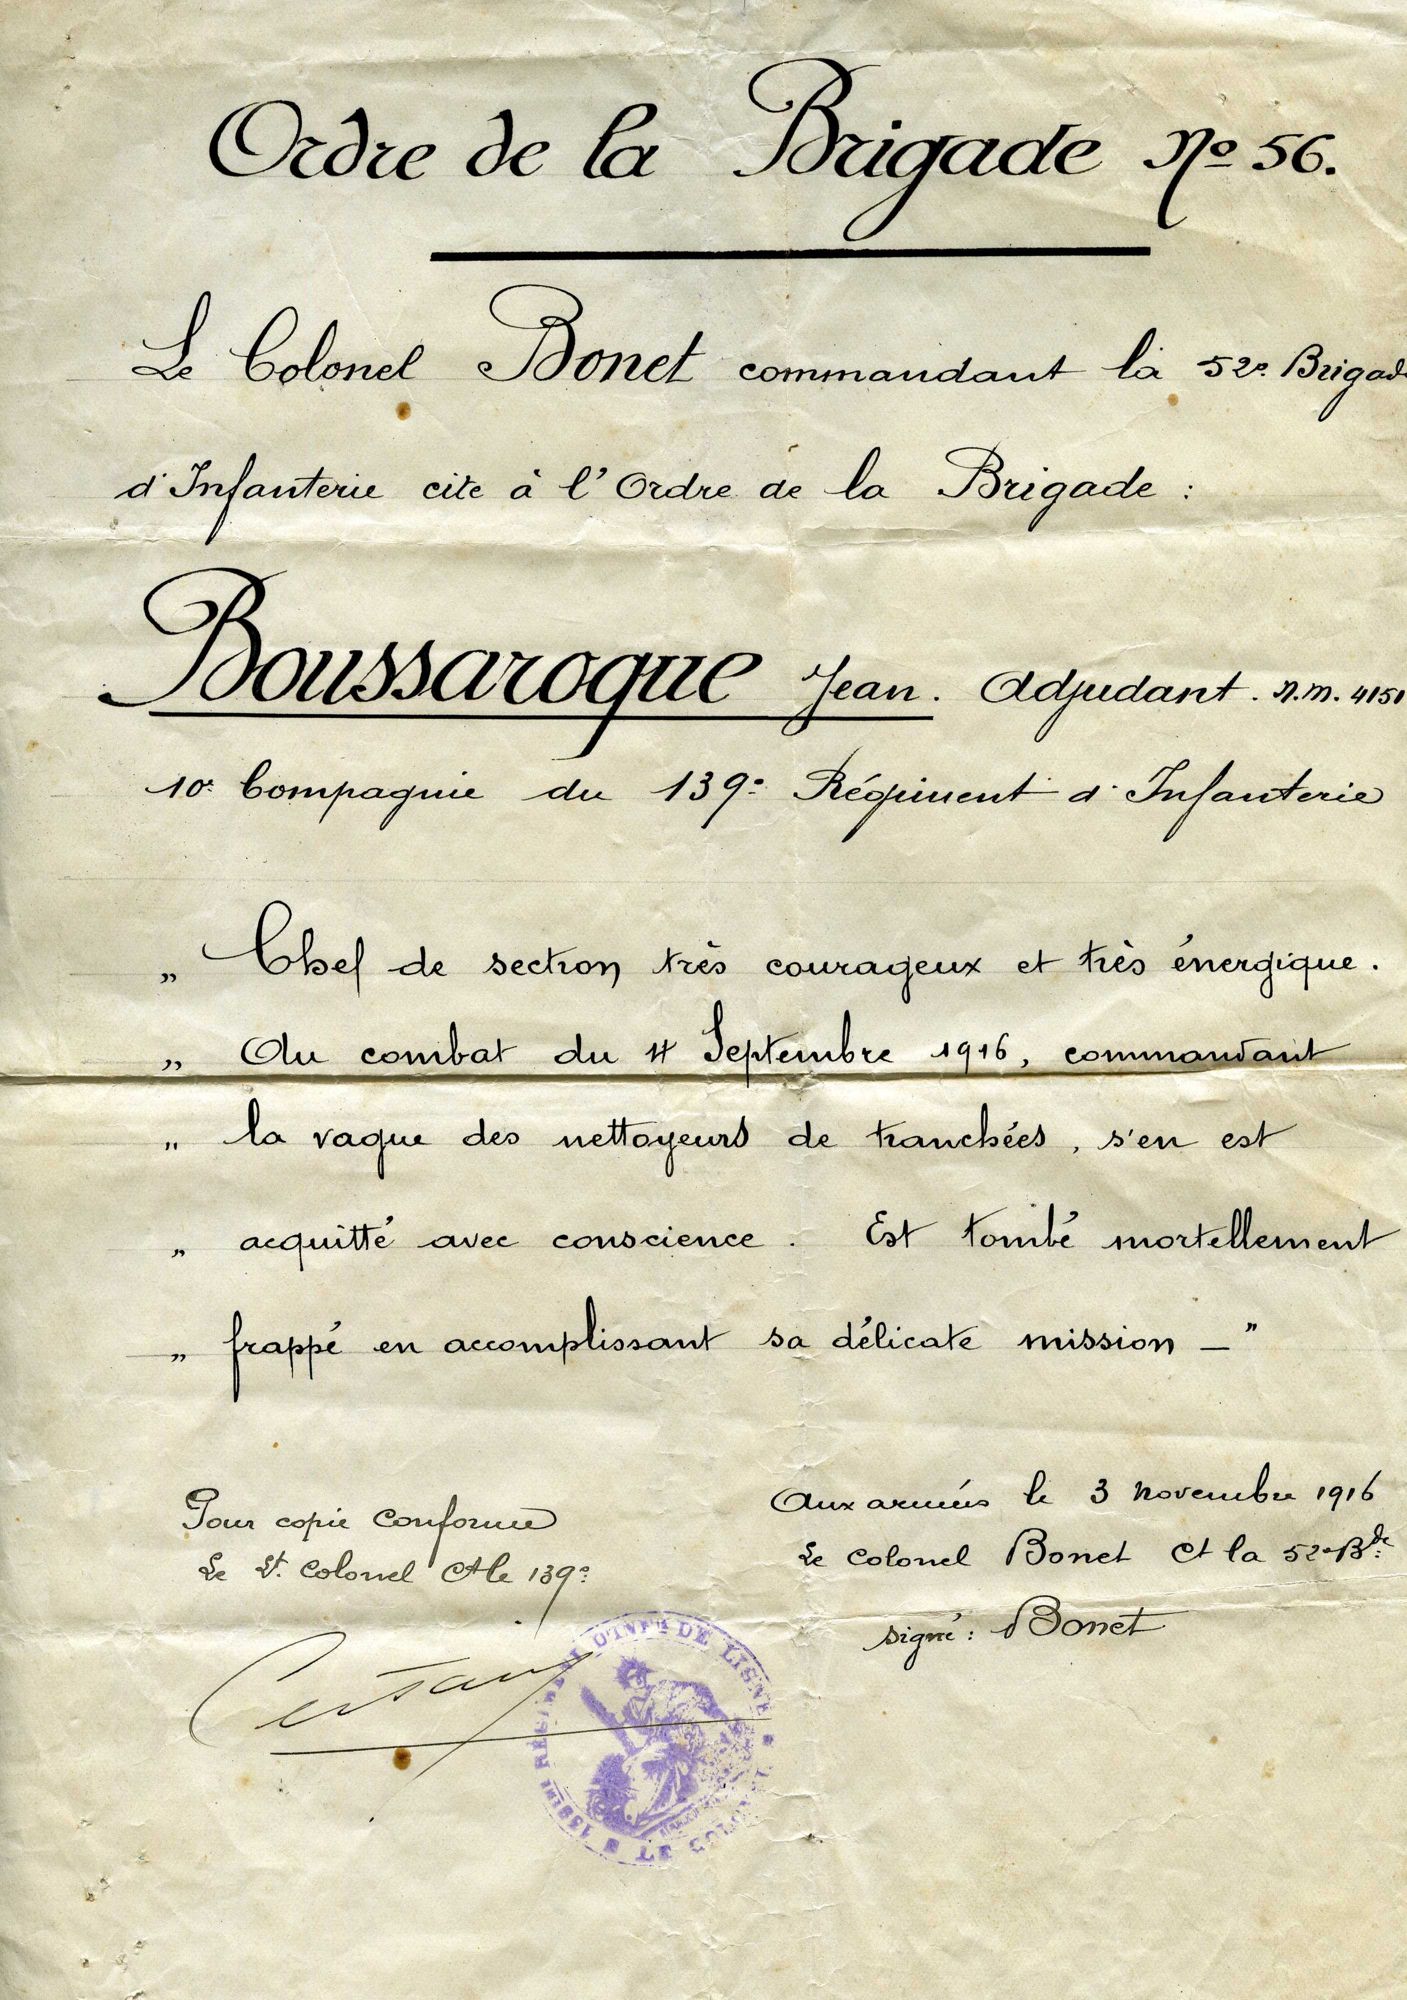 Ordre de la Brigade No 56.
Le Colonel Bonet commandant la 52e Brigade
d'Infanterie cite à l'Ordre de la Brigade :
Boussaroque Jean. Adjudant. n.m. 4151
10e Compagnie du 139e Régiment d'Infanterie
„ Chef de section très courageux et très énergique.
„ Au combat du 4 Septembre 1916, commandant
„ la vague des nettoyeurs de tranchées, s'en est
„ acquitté avec conscience. Est tombé mortellement
„ frappé en accomplissant sa délicate mission – "
Aux armées le 3 novembre 1916
Le Colonel Bonet Ct la 52e Bde
signé : Bonet
Pour copie conforme
Le Lt. Colonel Ct le 139e
139EME RÉGIMENT D'INFIE DE LIGNE